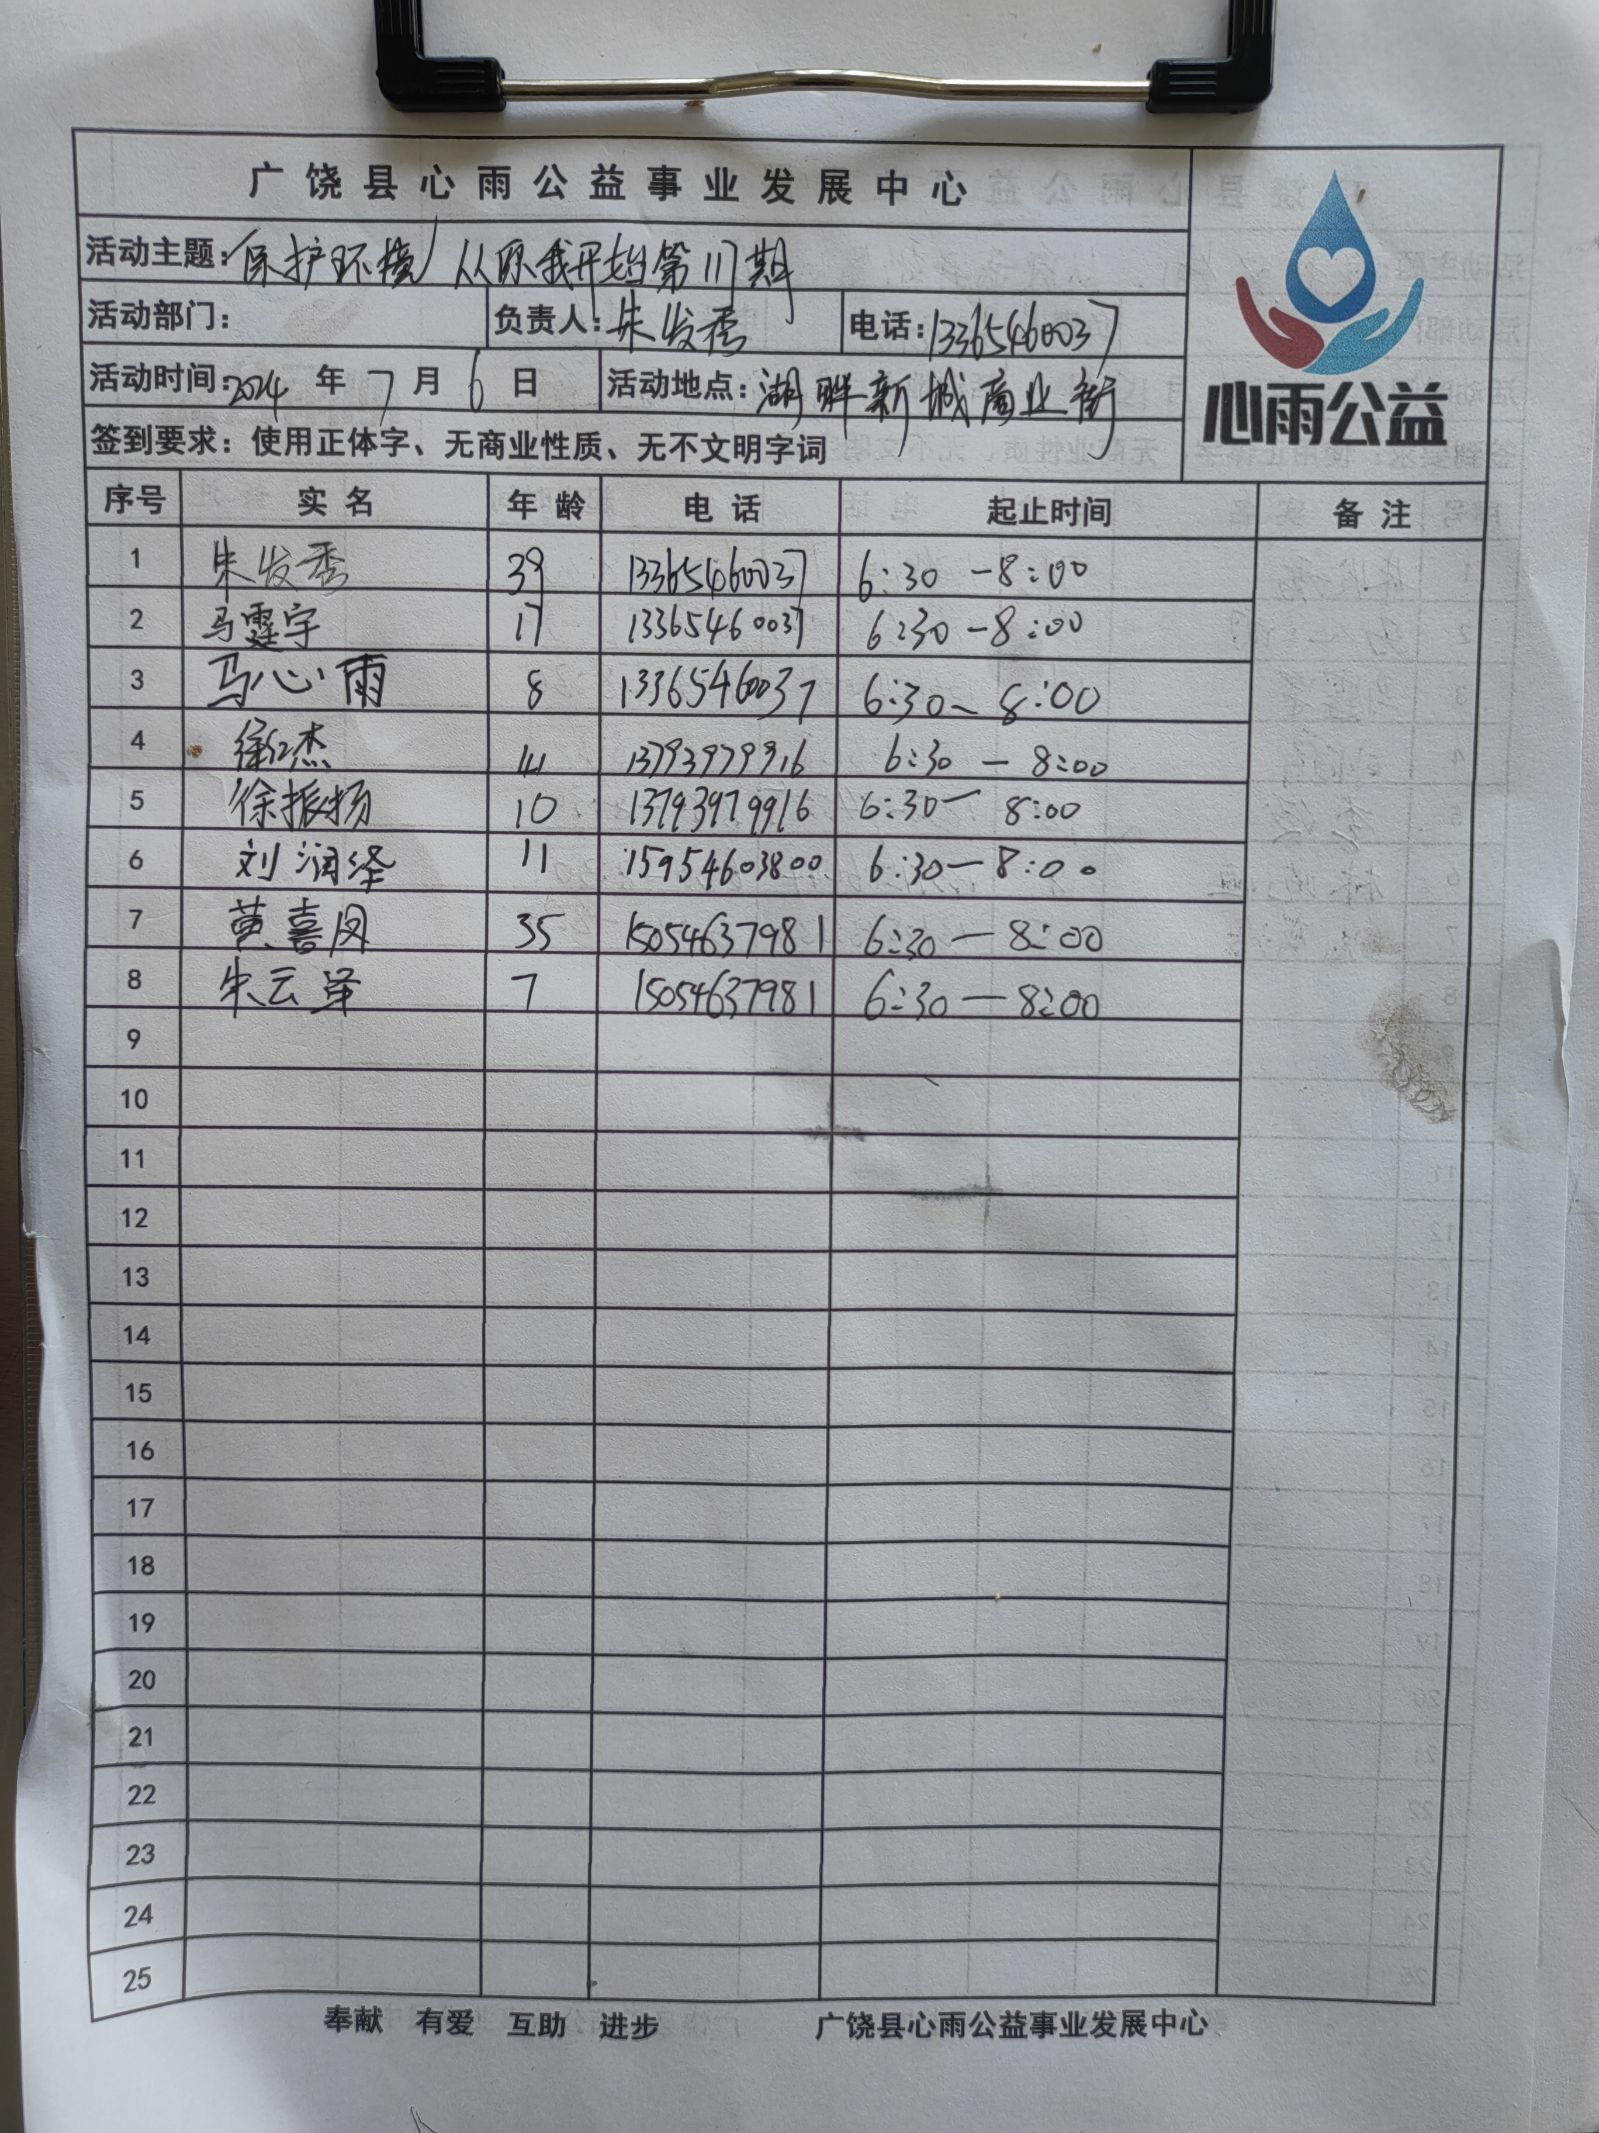 广饶县心雨公益事业发展中心
活动主题:保护环境 从我开始第117期
活动部门: 负责人:朱发秀 电话:13365460037
活动时间:2024年7月6日 活动地点:湖畔新城商业街
签到要求:使用正体字、无商业性质、无不文明字词
心雨公益
序号 实名 年龄 电话 起止时间 备注
1 朱发秀 39 13365460037 6:30-8:00
2 马霆宇 17 13365460037 6:30-8:00
3 马心雨 8 13365460037 6:30-8:00
4 徐红杰 41 13793979916 6:30-8:00
5 徐振扬 10 13793979916 6:30-8:00
6 刘润泽 11 15954603800 6:30-8:00
7 黄喜凤 35 15054637981 6:30-8:00
8 朱云泽 7 15054637981 6:30-8:00
9
10
11
12
13
14
15
16
17
18
19
20
21
22
23
24
25
奉献 有爱 互助 进步 广饶县心雨公益事业发展中心